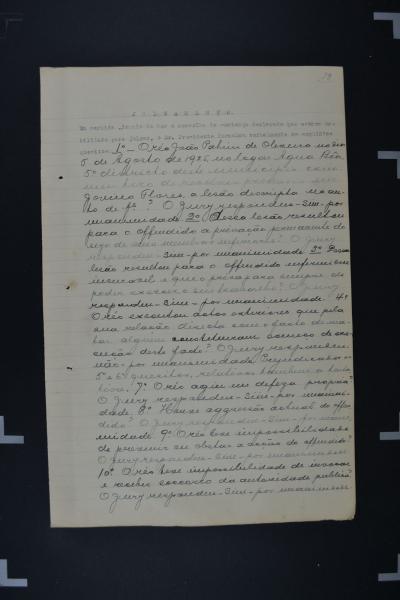 19
JULGAMENTO
Em seguida, , o Dr. Presidente formulou verbalmente os seguintes
quesitos: 1º - O réo João Patricio de Oliveira no dia
5 de Agosto de 1925 no logar Agua Bôa,
5º districto deste municipio
Gomercindo Flores, a lesão descripta no au-
to de fs? O Jury respondeu - Sim - por
unanimidade 2º Dessa lesão resultou
para o offendido a privação permanente do
uso de um membro O Jury
respondeu - Sim - por unanimidade 3º Dessa
lesão resultou para o offendido enfermidade
incuravel e que o priva para sempre de
poder exercer o seu trabalho? O Jury
respondeu - Sim - por unanimidade 4º
O réo executou actos exteriores que pela
sua relação directa com o facto de ma-
tar alguem constituiram começo de exe-
cução deste facto? O Jury respondeu -
não - por unanimidade Prejudicados
5º e 6º quesitos, relativos
7º O réo agiu em defeza propria?
O Jury respondeu - Sim - por unanimi-
dade 8º Houve aggressão actual do offen-
dido? O Jury respondeu - Sim - por una-
nimidade 9º O réo teve impossibilidade
de prevenir ou obstar a acção do offendido?
O Jury respondeu - Sim - por unanimidade
10º O réo teve impossibilidade de invocar
e receber soccorro da autoridade publica?
O Jury respondeu - Sim - por unanimidade